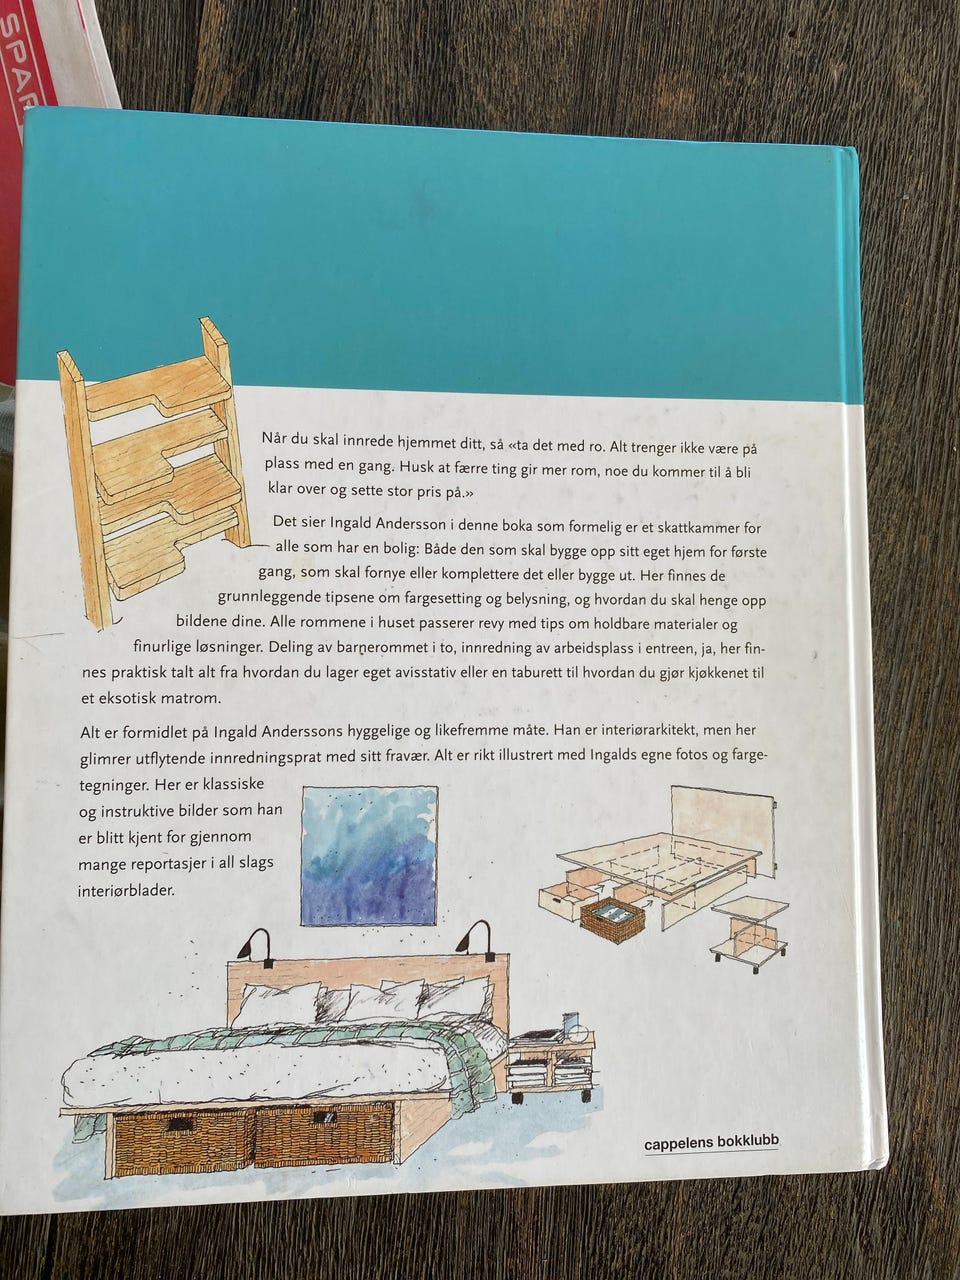 SPAR
Når du skal innrede hjemmet ditt, så «ta det med ro. Alt trenger ikke være på
plass med en gang. Husk at færre ting gir mer rom, noe du kommer til å bli
klar over og sette stor pris på.»
Det sier Ingald Andersson i denne boka som formelig er et skattkammer for
alle som har en bolig: Både den som skal bygge opp sitt eget hjem for første
gang, som skal fornye eller komplettere det eller bygge ut. Her finnes de
grunnleggende tipsene om fargesetting og belysning, og hvordan du skal henge opp
bildene dine. Alle rommene i huset passerer revy med tips om holdbare materialer og
finurlige løsninger. Deling av barnerommet i to, innredning av arbeidsplass i entreen, ja, her fin-
nes praktisk talt alt fra hvordan du lager eget avisstativ eller en taburett til hvordan du gjør kjøkkenet til
et eksotisk matrom.
Alt er formidlet på Ingald Anderssons hyggelige og likefremme måte. Han er interiørarkitekt, men her
glimrer utflytende innredningsprat med sitt fravær. Alt er rikt illustrert med Ingalds egne fotos og farge-
tegninger. Her er klassiske
og instruktive bilder som han
er blitt kjent for gjennom
mange reportasjer i all slags
interiørblader.
cappelens bokklubb